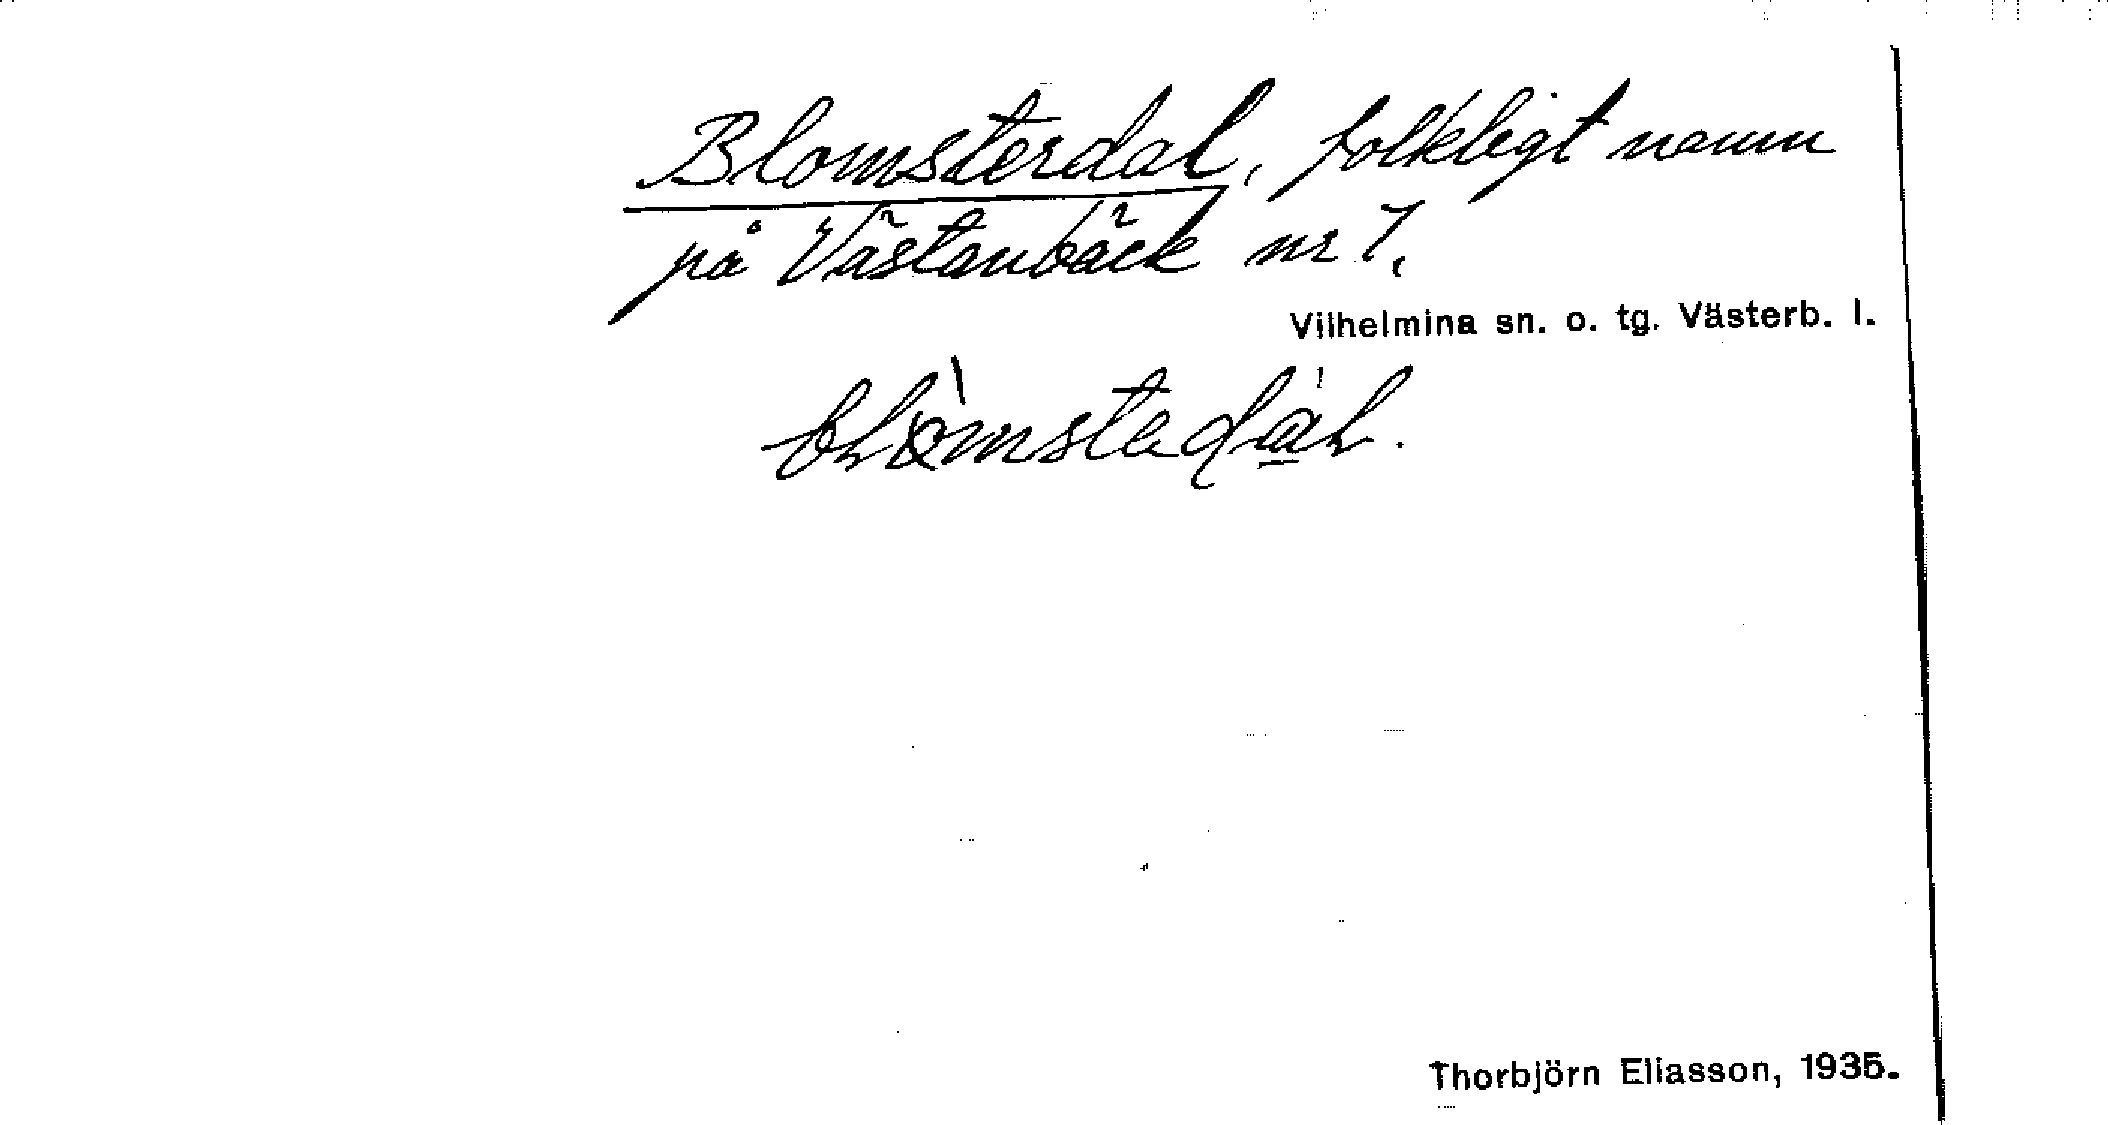 Blomsterdal, folkligt namn
på Västanbäck nr 7.
Vilhelmina sn. o. tg. Västerb. l.
Thorbjörn Eliasson, 1935.